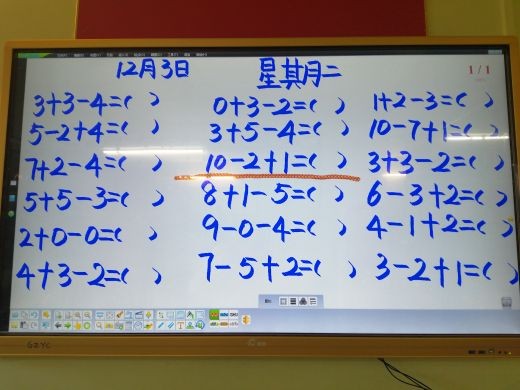 12月3日 星期二
1/1
3+3-4=( ) 0+3-2=( ) 1+2-3=( )
5-2+4=( ) 3+5-4=( ) 10-7+1=( )
7+2-4=( ) 10-2+1=( ) 3+3-2=( )
5+5-3=( ) 8+1-5=( ) 6-3+2=( )
2+0-0=( ) 9-0-4=( ) 4-1+2=( )
4+3-2=( ) 7-5+2=( ) 3-2+1=( )
GZYC